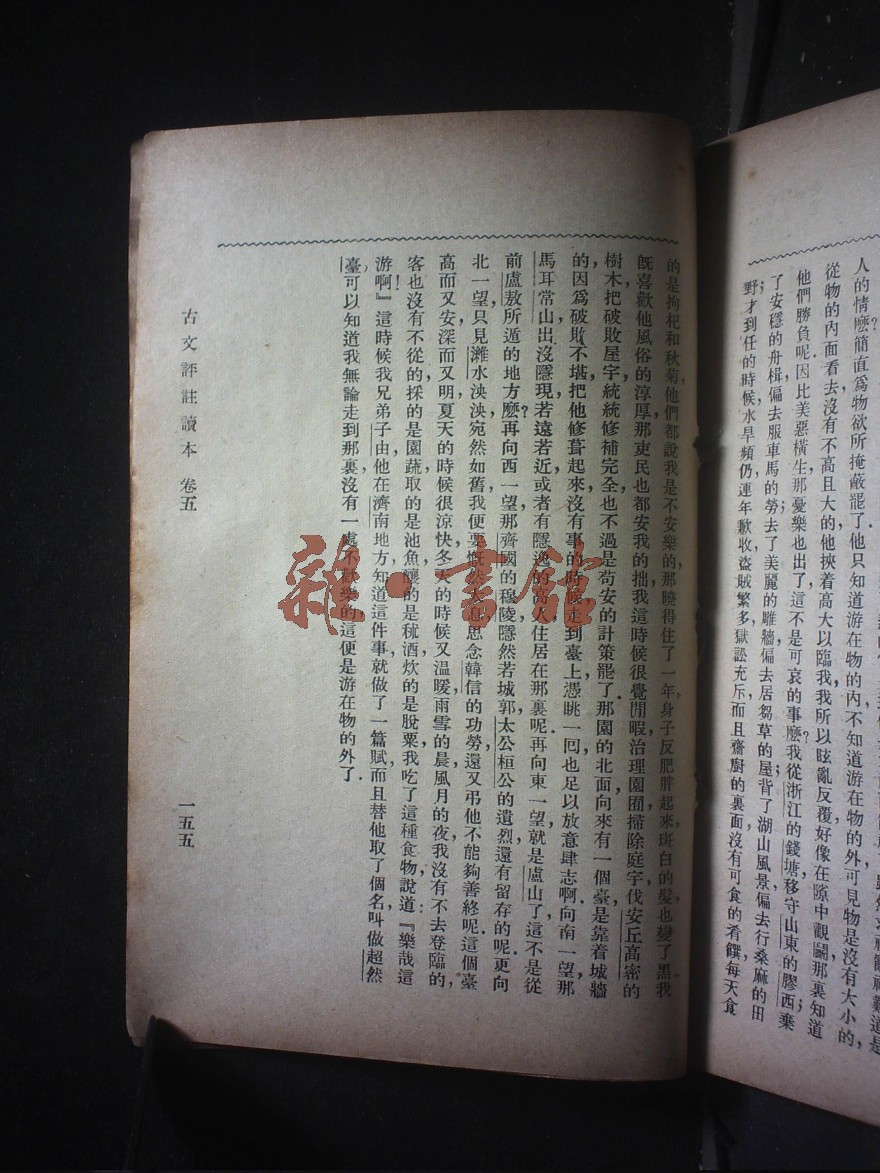 人的情麽簡直爲物欲所掩蔽罷了他只知道游在物的內不知道游在物的外可見物是沒有大小的，
從物的內面看去沒有不高且大的他挾着高大以臨我我所以眩亂反覆好像在隙中觀鬬那裏知道
他們勝負呢因比美惡橫生那憂樂也出了這不是可哀的事麽？我從浙江的錢塘移守山東的膠西棄
了安穩的舟楫偏去服車馬的勞；去了美麗的雕牆偏去居芻草的屋；背了湖山風景偏去行桑麻的田
野才到任的時候水旱頻仍連年歉收盜賊繁多獄訟充斥而且齋廚的裏面沒有可食的肴饌每天食
的是拘杞和秋菊，他們都說我是不安樂的那曉得住了一年，身子反肥胖起來斑白的髮也變了黑我
旣喜歡他風俗的淳厚，那吏民也都安我的拙我這時候很覺閒暇治理園囿掃除庭宇伐安丘高密的
樹木把破敗屋宇統統修補完全也不過是苟安的計策罷了．那園的北面向來有一個臺是靠着城牆
的，因爲破敗不堪把他修葺起來沒有事的時候走到臺上憑眺一回也足以放意肆志啊．向南一望那
馬耳常山出沒隱現若遠若近或者有隱逸的高人住居在那裏呢．再向東一望就是盧山了這不是從
前盧敖所遁的地方麽？再向西一望那齊國的穆陵隱然若城郭太公桓公的遺烈還有留存的呢．更向
北一望只見濰水泱泱宛然如舊我便要慨然太息思念韓信的功勞還又弔他不能夠善終呢．這個臺
高而又安，深而又明，夏天的時候很涼快，冬天的時候又溫暖，雨雪的晨，風月的夜，我沒有不去登臨的，
客也沒有不從的，採的是園蔬，取的是池魚，釀的是秫酒，炊的是脫粟，我吃了這種食物說道：『樂哉這
游啊！』這時候我兄弟子由，他在濟南地方知道這件事，就做了一篇賦，而且替他取了個名叫做超然
臺，可以知道我無論走到那裏沒有一處不歡樂的，這便是游在物的外了．
古文評註讀本 卷五
一五五
雜·書館